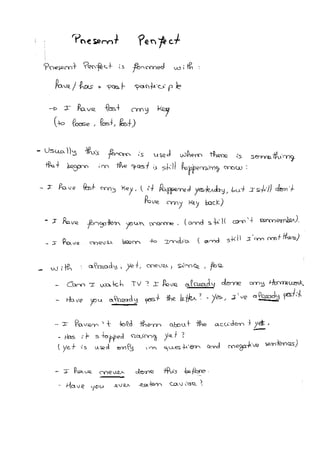 Present Perfect
Present Perfect is formed with :
have / has + past participle
→ I have lost my key
(to loose, lost, lost)
- Usually this form is used when there is something
that began in the past is still happening now :
- I have lost my key. ( it happened yesterday, but I still don't
have my key back)
- I have forgotten your name. (and I still can't remember).
- I have never been to India ( and still I'm not there)
- with : already, yet, never, since, for
- Can I watch TV ? I have already done my Homework
- Have you already post the letter ? - Yes, I've already post it
- I haven't told them about the accident yet.
- Has it stopped raining yet ?
( yet is used only in question and negative sentences)
- I have never done this before.
- Have you ever eaten caviar ?